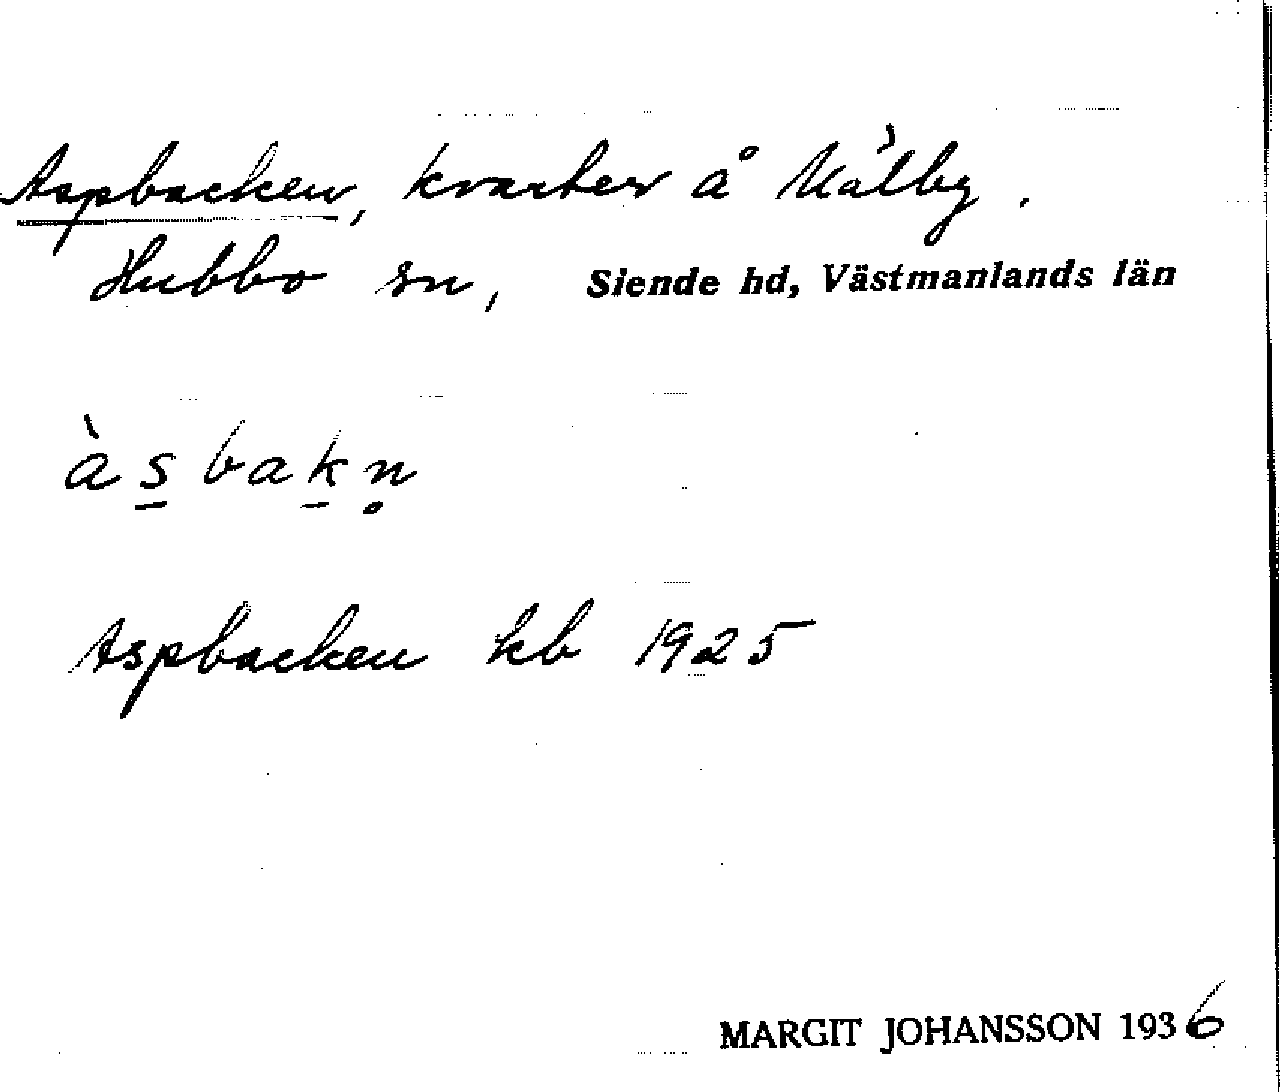 Aspbacken, kvarter å Målby.
Hubbo sn, Siende hd, Västmanlands län
às̱baḵn̥
Aspbacken kb 1925
MARGIT JOHANSSON 1936